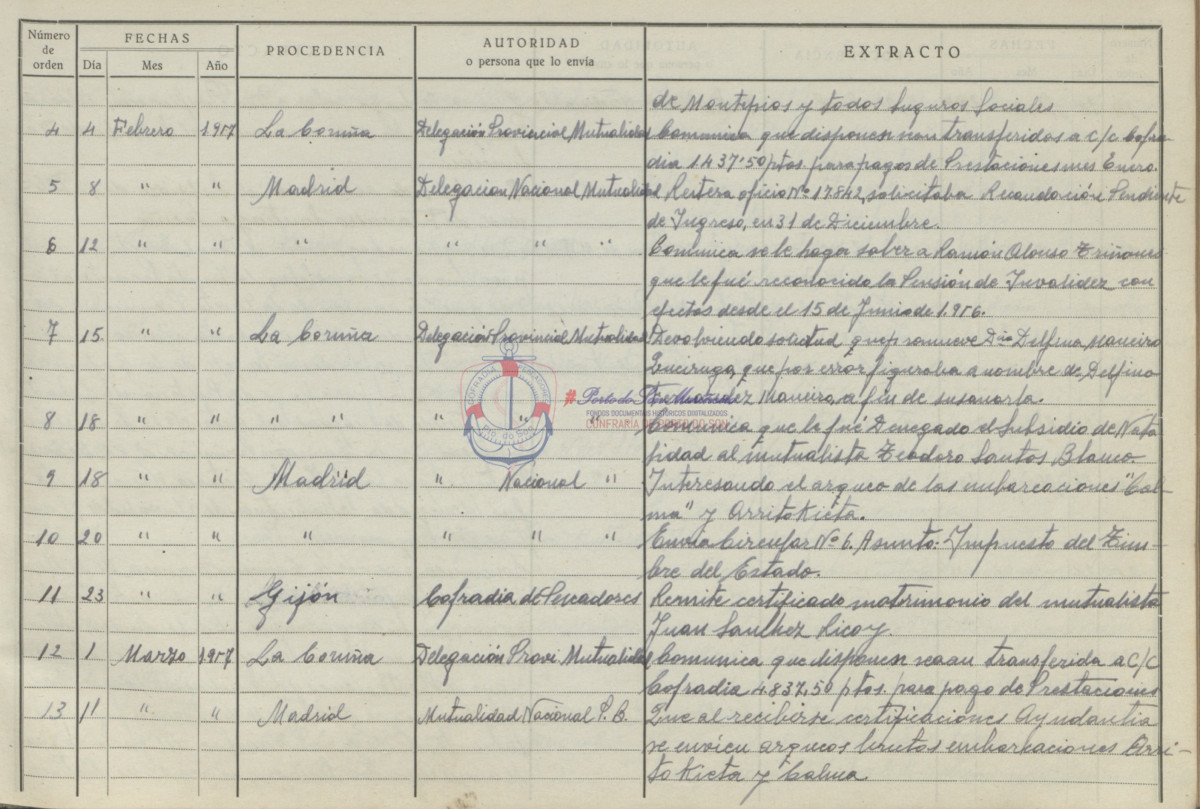 Número de orden FECHAS Día Mes Año PROCEDENCIA AUTORIDAD o persona que lo envía EXTRACTO
de Montepios y todos Seguros Sociales
4 4 Febrero 1.957 La Coruña Delegación Provincial Mutualidad Comunica que disponen sean transferidas a c/c Cofra
dia 1.437'50 ptos. para pagos de Prestaciones mes Enero.
5 8 " " Madrid Delegacion Nacional Mutualidad Reitera oficio Nº 17842, solicitaba Recaudación Pendiente
de Ingreso, en 31 de Diciembre.
6 12 " " " " " " Comunica se le haga saber a Ramón Alonso
que le fué reconocida la Pensión de Invalidez con
efectos desde el 15 de Junio de 1.956.
7 15. " " La Coruña Delegación Provincial Mutualidad Devolviendo solicitud que promueve Dña Delfina Maneiro
Queiruga, que por error figuraba a nombre de Delfino
Maneiro, a fin de susanarla.
8 18 " " " " " " " Comunica que le fué Denegado el Subsidio de Nata
lidad al mutualista Teodoro Santos Blanco.
9 18 " " Madrid " Nacional " Interesando el arqueo de las embarcaciones "Cal
ma" y Arritokieta.
10 20 " " " " " " Envia Circular Nº 6. Asunto: Impuesto del Tim-
bre del Estado.
11 23 " " Gijón Cofradia de Pescadores Remite certificado matrimonio del mutualista
Juan Sanchez Ricoy.
12 1 Marzo 1.957 La Coruña Delegación Provi. Mutualidad Comunica que disponen sean transferida a C/C
Cofradia 4.837,50 ptos. para pago de Prestaciones
13 11 " " Madrid Mutualidad Nacional P. B. Que al recibirse certificaciones Ayudantia
se envíen arqueos brutos embarcaciones Arri-
tokieta y Calma.
COFRADÍA PESCADORES
Pto. do Son
#PortodoSonMariñeiro
FONDOS DOCUMENTAIS HISTÓRICOS DIXITALIZADOS
CONFRARÍA DE PORTO DO SON